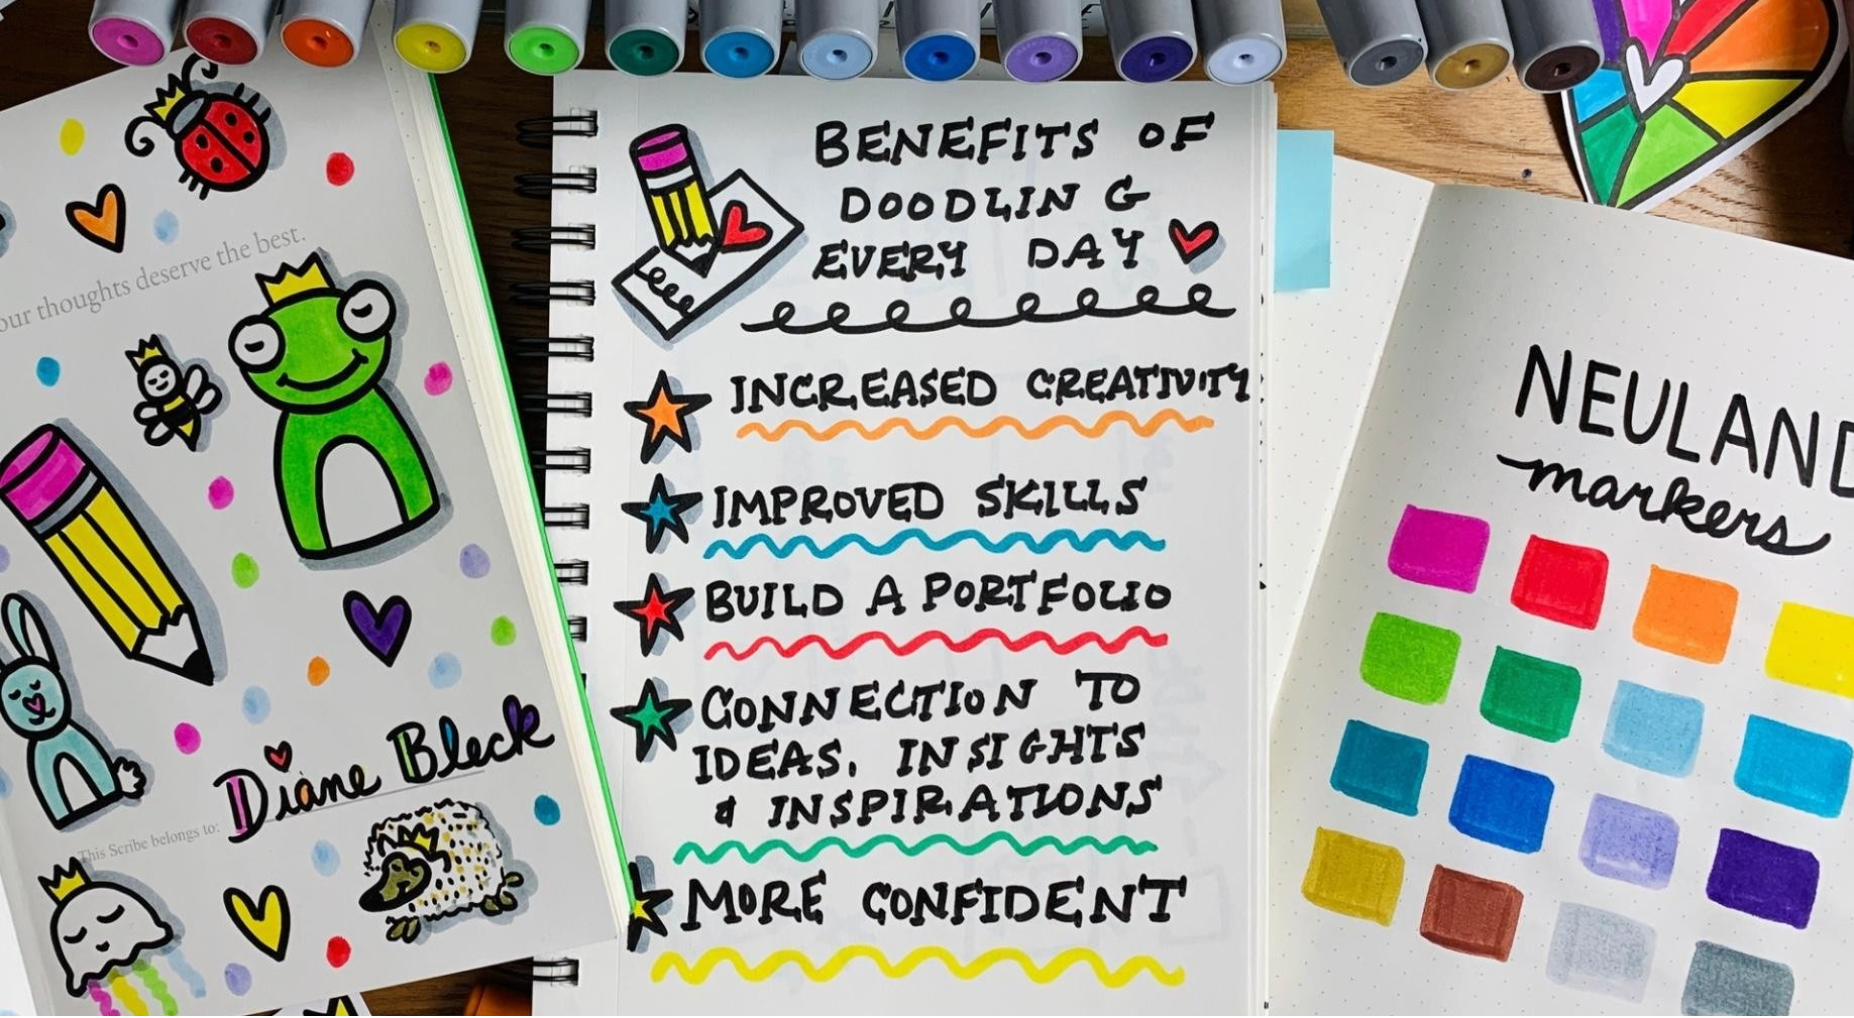 our thoughts deserve the best.
Diane Bleck
This Scribe belongs to:
BENEFITS OF
DOODLING
EVERY DAY
INCREASED CREATIVITY
IMPROVED SKILLS
BUILD A PORTFOLIO
CONNECTION TO
IDEAS, INSIGHTS
& INSPIRATIONS
MORE CONFIDENT
NEULAND
markers